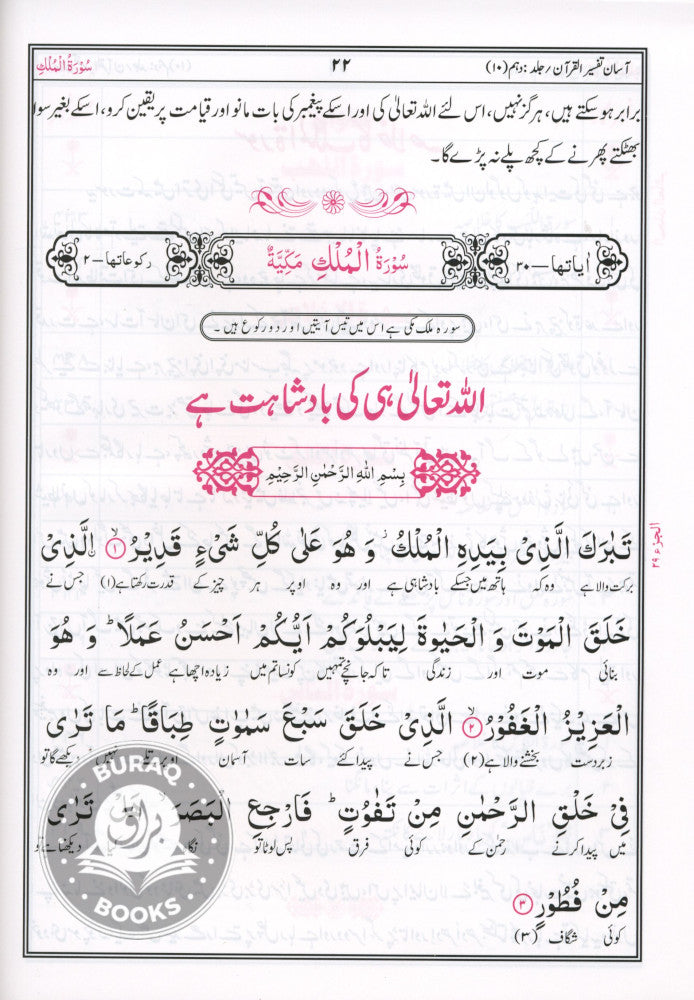 آسان تفسیر القرآن / جلد : دہم (۱۰)
۲۲
سُوْرَةُ الْمُلْكِ
برابر ہو سکتے ہیں، ہرگز نہیں، اس لئے اللہ تعالیٰ کی اور اسکے پیغمبر کی بات مانو اور قیامت پر یقین کرو، اسکے بغیر سوا
بھٹکتے پھرنے کے کچھ پلے نہ پڑے گا۔
اٰیاتھا — ۳۰
سُوْرَةُ الْمُلْكِ مَكِّيَّةٌ
رکوعاتھا — ۲
سورہ ملک مکی ہے اس میں تیس آیتیں اور دو رکوع ہیں۔
اللہ تعالیٰ ہی کی بادشاہت ہے
بِسْمِ اللهِ الرَّحْمٰنِ الرَّحِيْمِ
تَبٰرَكَ الَّذِىْ بِيَدِهِ الْمُلْكُ ۡ وَ هُوَ عَلٰى كُلِّ شَىْءٍ قَدِيْرُ ۙ ۱ الَّذِىْ
برکت والا ہے وہ کہ ہاتھ میں جسکے بادشاہی ہے اور وہ اوپر ہر چیز کے قدرت رکھتا ہے (۱) جس نے
خَلَقَ الْمَوْتَ وَ الْحَيٰوةَ لِيَبْلُوَكُمْ اَيُّكُمْ اَحْسَنُ عَمَلًا ؕ وَ هُوَ
بنائی موت اور زندگی تاکہ جانچے تمہیں کونسا تم میں زیادہ اچھا ہے عمل کے لحاظ سے اور وہ
الْعَزِيْزُ الْغَفُوْرُ ۙ ۲ الَّذِىْ خَلَقَ سَبْعَ سَمٰوٰتٍ طِبَاقًا ؕ مَا تَرٰى
زبردست بخشنے والا ہے (۲) جس نے پیدا کئے سات آسمان اوپر تلے نہیں دیکھے گا تو
فِىْ خَلْقِ الرَّحْمٰنِ مِنْ تَفٰوُتٍ ؕ فَارْجِعِ الْبَصَرَ ۙ هَلْ تَرٰى
میں پیدا کرنے رحمٰن کے کوئی فرق پس لوٹا تو دیکھتا ہے تو
مِنْ فُطُوْرٍ ۳
کوئی شگاف (۳)
الجزء ۲۹
BURAQ
براق
BOOKS